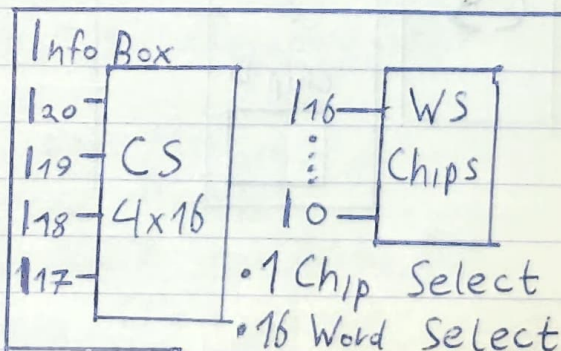 Info Box
I20
I19
I18
I17
CS
4x16
I16
I0
WS
Chips
•1 Chip Select
•16 Word Select